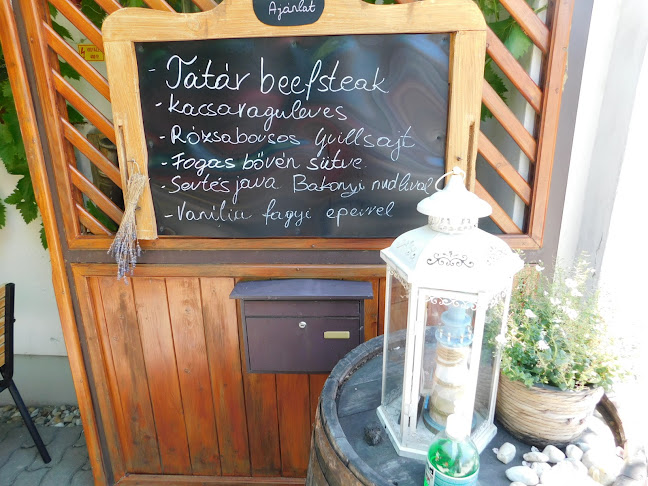 Ajánlat
- Tatár beefsteak
- Kacsaraguleves
- Rózsaborsos Grillsajt
- Fogas bővén sütve
- Sertés java Bakonyi nudlival
- Vanília fagyi eperrel